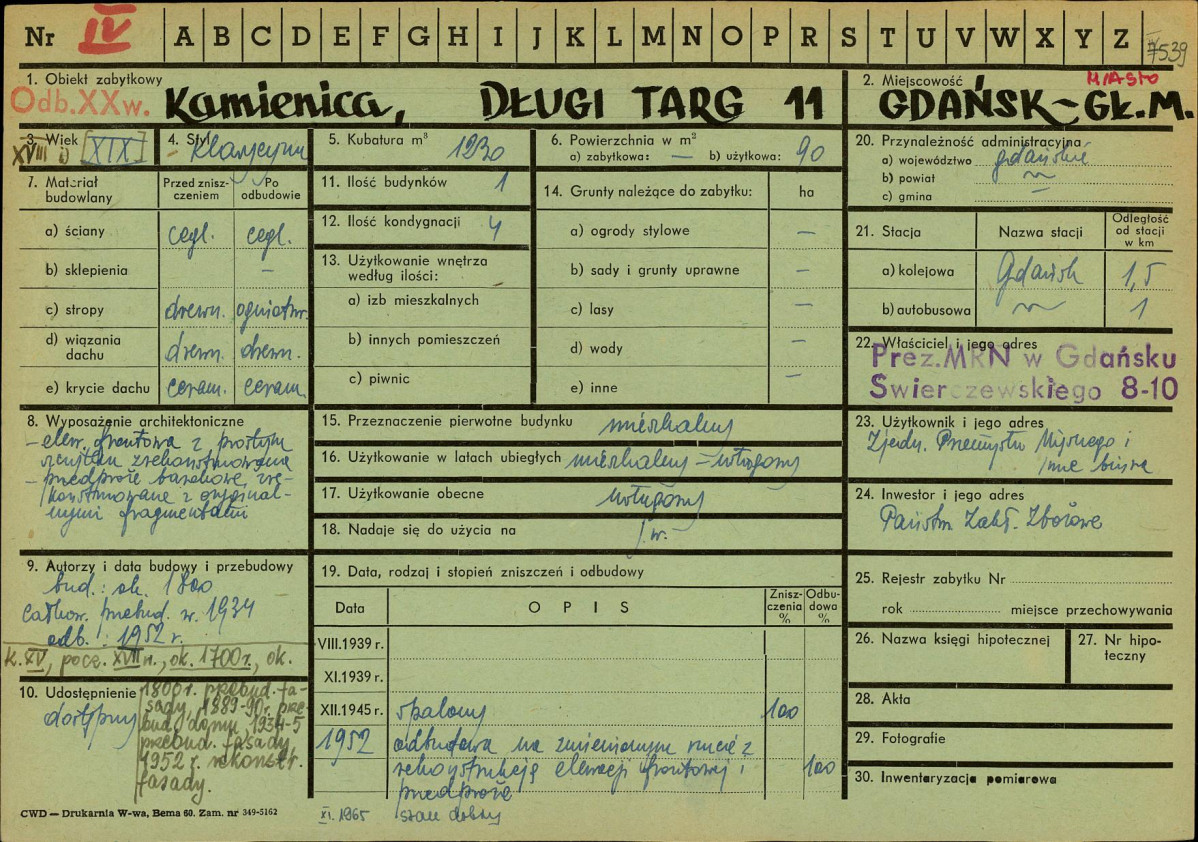 Nr IV A B C D E F G H I J K L M N O P R S T U V W X Y Z 7539
1. Obiekt zabytkowy
Odb. XX w. Kamienica, DŁUGI TARG 11
2. Miejscowość MIASTO
GDAŃSK-GŁ.M.
3. Wiek
XVIII i XIX
4. Styl
klasycyzm
5. Kubatura m³ 1230
6. Powierzchnia w m²
a) zabytkowa: — b) użytkowa: 90
7. Materiał budowlany
Przed zniszczeniem
Po odbudowie
a) ściany cegl. cegl.
b) sklepienia –
c) stropy drewn. ogniotrw.
d) wiązania dachu drewn. drewn.
e) krycie dachu ceram. ceram.
11. Ilość budynków 1
12. Ilość kondygnacji 4
13. Użytkowanie wnętrza według ilości:
a) izb mieszkalnych
b) innych pomieszczeń
c) piwnic
14. Grunty należące do zabytku: ha
a) ogrody stylowe —
b) sady i grunty uprawne —
c) lasy —
d) wody —
e) inne —
20. Przynależność administracyjna
a) województwo gdańskie
b) powiat
c) gmina —
21. Stacja Nazwa stacji Odległość od stacji w km
a) kolejowa Gdańsk 1,5
b) autobusowa 1
22. Właściciel i jego adres
Prez.MRN w Gdańsku
Świerczewskiego 8-10
8. Wyposażenie architektoniczne
- elew. frontowa z prostym
szczytem zrekonstruowana
- przedproże barokowe, zre-
konstruowane z oryginal-
nymi fragmentami
15. Przeznaczenie pierwotne budynku mieszkalny
16. Użytkowanie w latach ubiegłych mieszkalny - usługowy
17. Użytkowanie obecne usługowy
18. Nadaje się do użycia na j.w.
23. Użytkownik i jego adres
Zjedn. Przemysłu Mięsnego i
inne biura
24. Inwestor i jego adres
Państw. Zakł. Zbożowe
9. Autorzy i data budowy i przebudowy
bud.: ok. 1800
całkow. przebud. w. 1934
odb.: 1952 r.
k. XV, pocz. XVII w., ok. 1700 r., ok.
1800 r. przebud. fa-
sady, 1889-90 r. prze-
bud. domu, 1934-5
przebud. fasady,
1952 r. rekonstr.
fasady.
10. Udostępnienie
dostępny
19. Data, rodzaj i stopień zniszczeń i odbudowy
Data OPIS Zniszczenia % Odbudowa %
VIII.1939 r.
XI.1939 r.
XII.1945 r. spalony 100
1952 odbudowa na zmienionym rzucie z
rekonstrukcją elewacji frontowej i 100
przedproża
XI.1965 stan dobry
25. Rejestr zabytku Nr
rok miejsce przechowywania
26. Nazwa księgi hipotecznej
27. Nr hipoteczny
28. Akta
29. Fotografie
30. Inwentaryzacja pomiarowa
CWD — Drukarnia W-wa, Bema 60. Zam. nr 349-5162